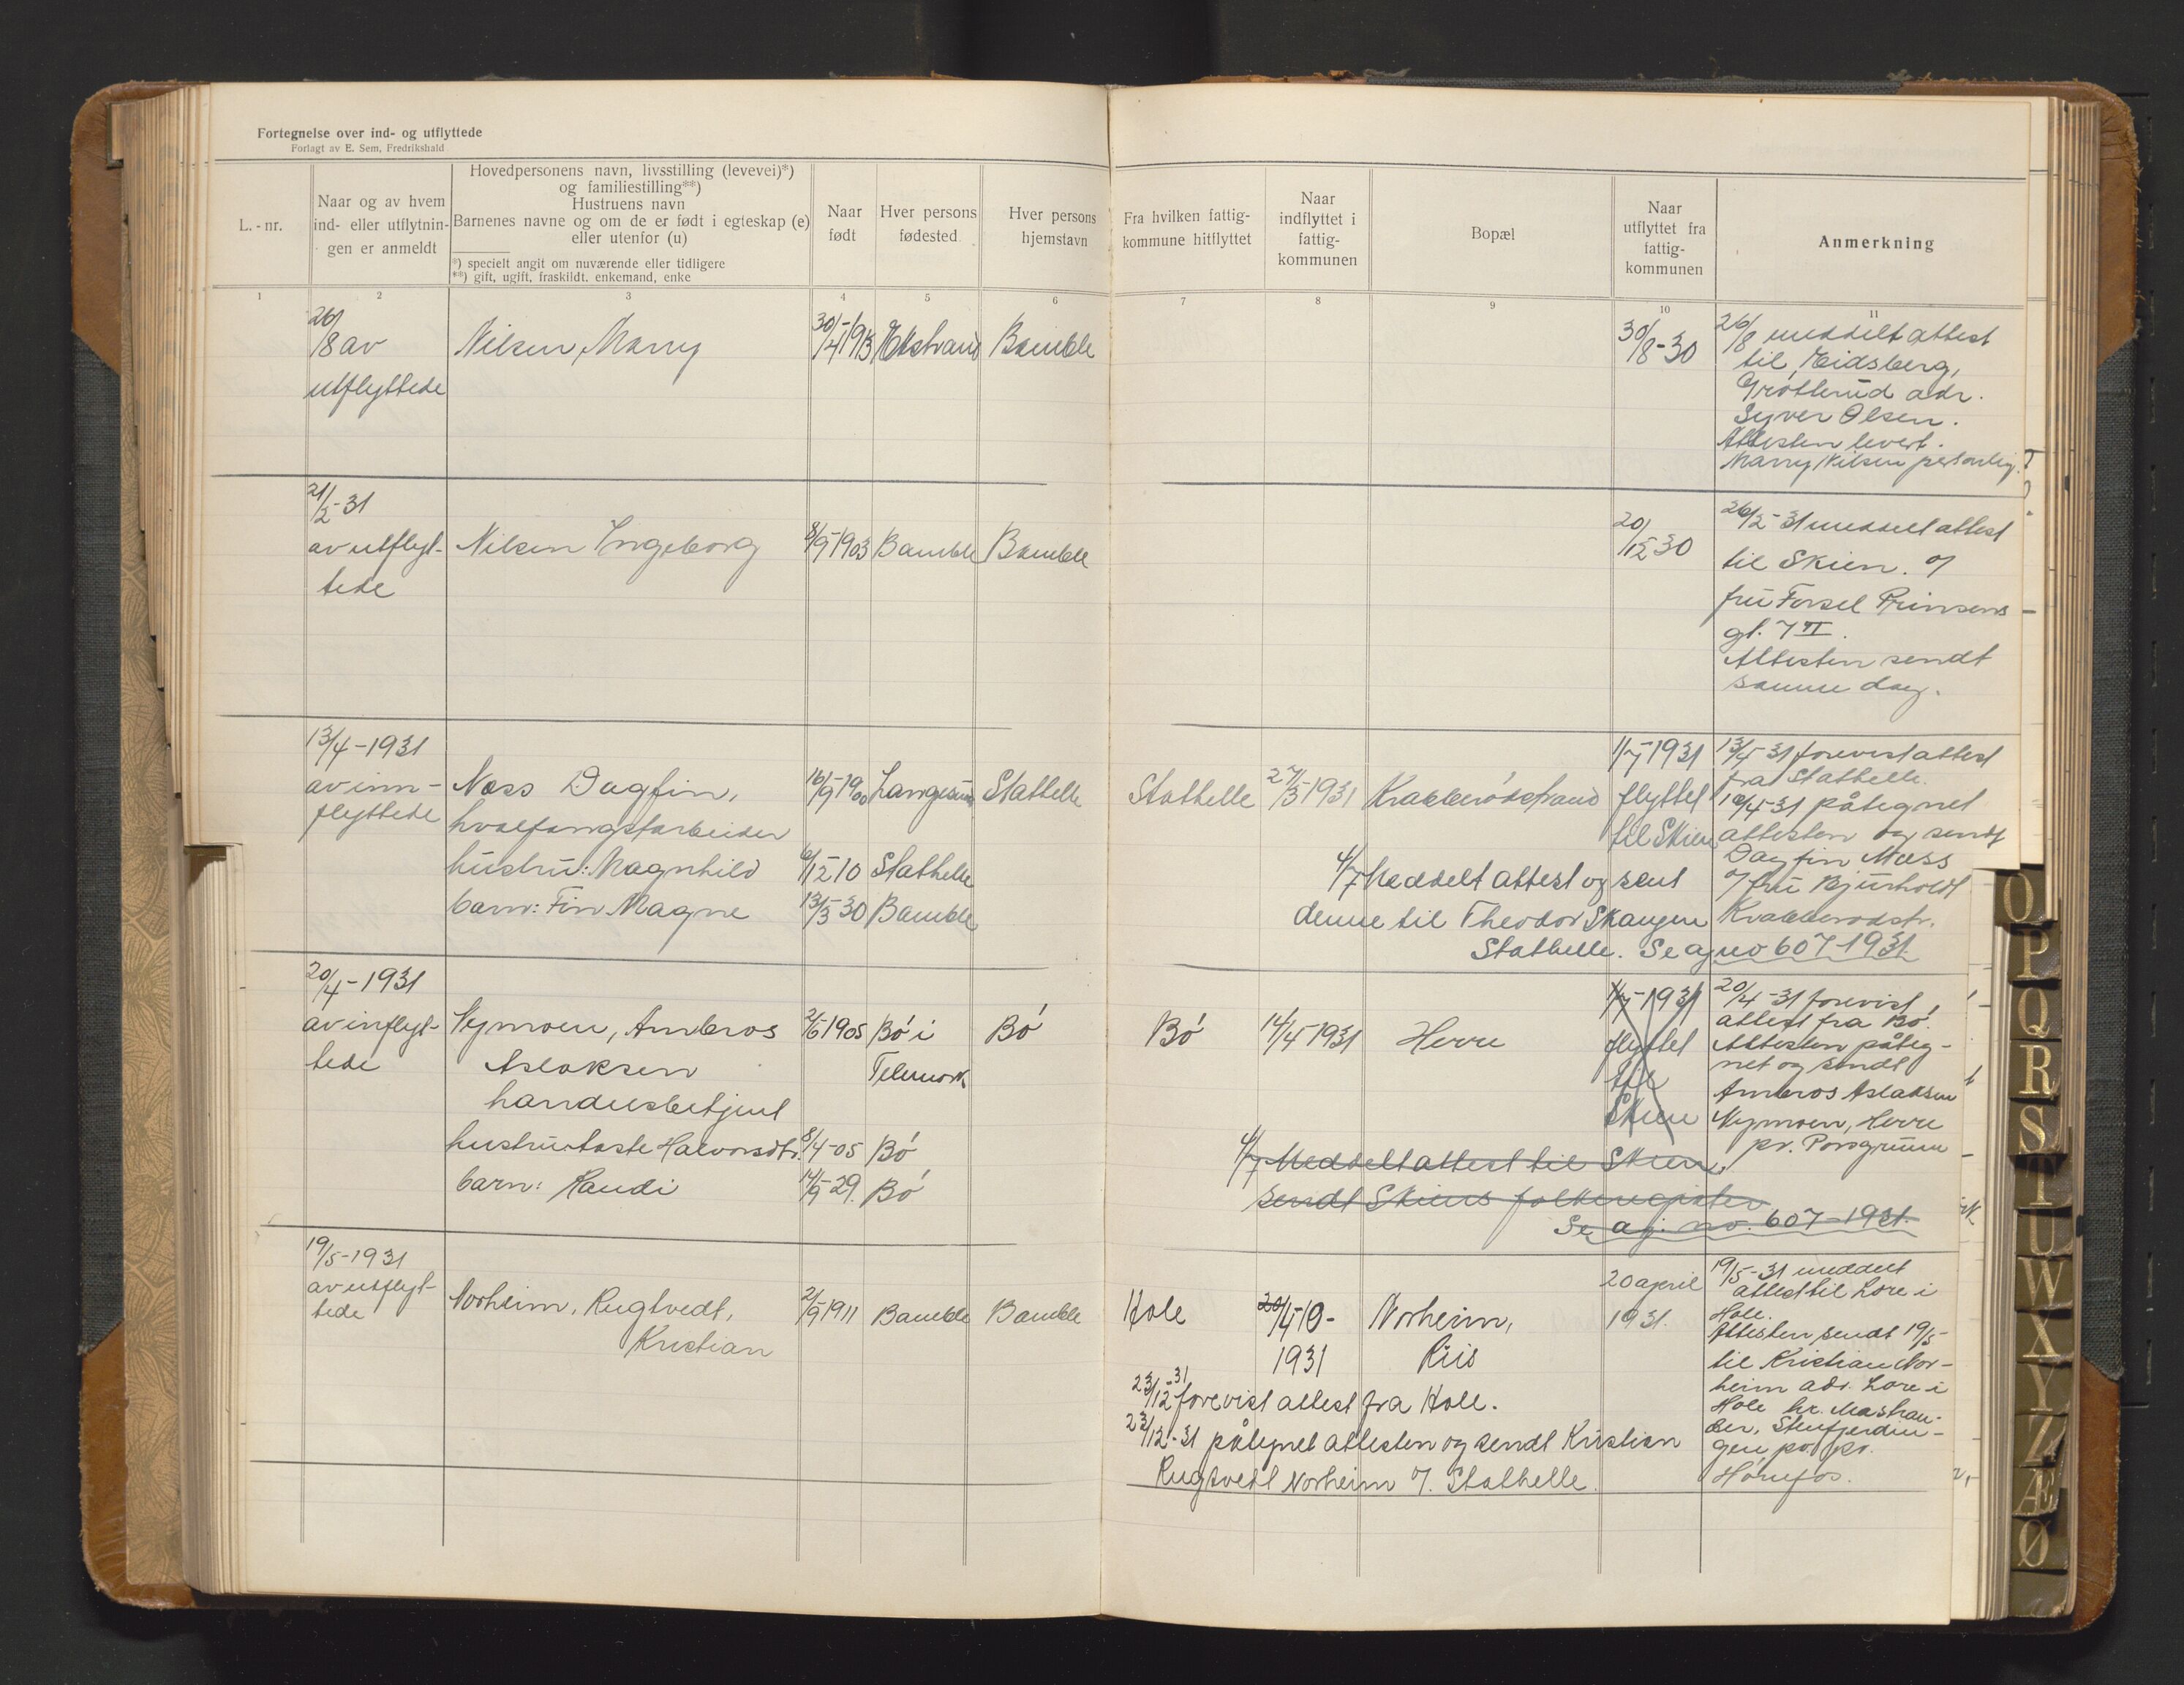 Fortegnelse over ind- og utflyttede
Forlagt av E. Sem, Fredrikshald
L.-nr.
Naar og av hvem
ind- eller utflytnin-
gen er anmeldt
Hovedpersonens navn, livsstilling (levevei)*)
og familiestilling**)
Hustruens navn
Barnenes navne og om de er født i egteskap (e)
eller utenfor (u)
*) specielt angit om nuværende eller tidligere
**) gift, ugift, fraskildt. enkemand, enke
Naar
født
Hver persons
fødested
Hver persons
hjemstavn
Fra hvilken fattig-
kommune hitflyttet
Naar
indflyttet i
fattig-
kommunen
Bopæl
Naar
utflyttet fra
fattig-
kommunen
Anmerkning
1 2 3 4 5 6 7 8 9 10 11
26/8 av
utflyttede
Nilsen, Marry
30/4-1913
Bamble
30/8-30
26/8 meddelt attest
til Eidsberg,
Grøtterud adr.
Syver Olsen.
Attesten levert.
Marry Nilsen personlig.
21/2-31
av utflyt-
tede
Nilsen Ingeborg
8/9-1903
Bamble
Bamble
20/12-30
26/2-31 meddelt attest
til Skien. %
fru Forsel Prinsens-
gt. 7 II.
Attesten sendt
samme dag.
13/4-1931
av inn-
flyttede
Næss Dagfin,
hvalfangstarbeider
hustru: Magnhild
barn: Fin Magne
16/9-1900
Langesund
Stathelle
6/12-10
Stathelle
13/3-30
Bamble
Stathelle
27/3-1931
Krabberødstrand
1/7-1931
flyttet
til Skien
13/4-31 forevist attest
fra Stathelle.
16/4-31 påtegnet
attesten og sendt
Dagfin Næss
% fru Bjurholdt
Krabberødstr.
4/7 Meddelt attest og sent
denne til Theodor Skaugen
Stathelle. Se ajno 607-1931.
20/4-1931
av inflyt-
tede
Nymoen, Ambros
Aslaksen
handelsbetjent
hustru: Aaste Halvorsdtr.
barn: Randi
2/6-1905
Bø i
Telemork
Bø
8/4-05
Bø
14/9-29.
Bø
Bø
14/4-1931
Herre
1/7-1931
flyttet
til
Skien
20/4-31 forevist
attest fra Bø.
Attesten påteg-
net og sendt
Ambros Aslaksen
Nymoen, Herre
pr. Porsgrunn
4/7 Meddelt attest til Skien,
sendt Skiens folkeregister
Se aj. no. 607-1931.
19/5-1931
av utflyt-
tede
Norheim, Rugtvedt,
Kristian
2/9-1911
Bamble
Bamble
Hole
1931
Norheim,
Riis
20 april
1931.
19/5-31 meddelt
attest til Lore i
Hole.
Attesten sendt 19/5-
til Kristian Nor-
heim adr. Lore i
Hole
Stenfjerdin-
gen pr. pr.
Hønefos.
23/12-31 forevist attest fra Hole.
23/12-31 påtegnet attesten og sendt Kristian
Rugtvedt Norheim %. Stathelle.
O
P
Q
R
S
T
U
W
X
Y
Z
Æ
Ø